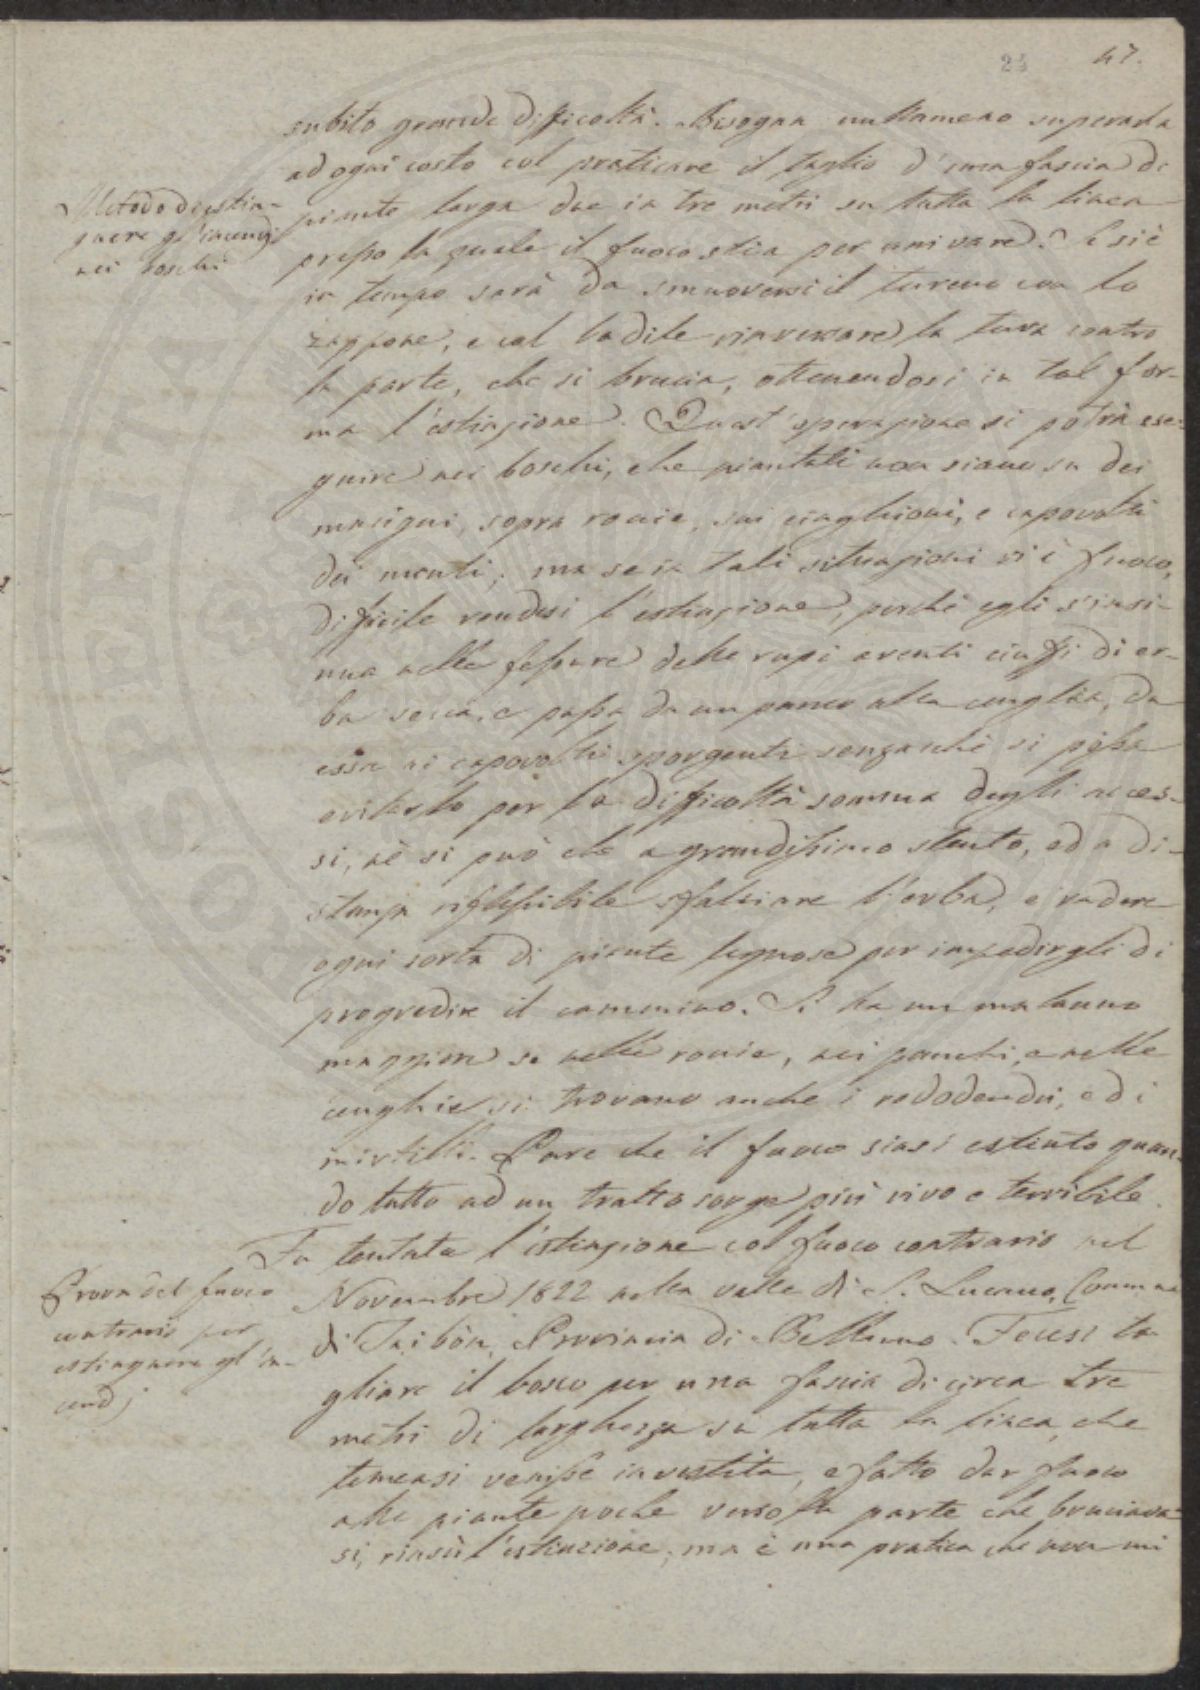 24 47.
subito grande difficoltà. Bisogna nullameno superarla
ad ogni costo col praticare il taglio d'una fascia di
Metodo di estin-
guere gl'incendj
nei boschi
piante larga due in tre metri su tutta la linea
presso la quale il fuoco stia per arrivare. Se si è
in tempo sarà da smuoversi il terreno con lo
zappone, e col badile rinversare la terra contro
la parte, che si brucia, ottenendosi in tal for-
ma l'estinzione. Quest'operazione si potrà ese-
guire nei boschi, che piantati non siano su dei
macigni, sopra rocie, sui cinghioni, e capovolti
dei monti; ma se in tali situazioni vi è fuoco,
difficile rendesi l'estinzione, perché egli s'insi-
nua nelle fessure delle rupi aventi ciuffi di er-
ba secca, e passa da un panco alla cenghia, da
essa ai capovolti sporgenti senzachè si possa
evitarlo per la difficoltà somma degli acces-
si, nè si può che a grandissimo stento, ed a di-
stanza riflessibile sfalciare l'erba, e radere
ogni sorta di piante legnose per impedirgli di
progredire il cammino. Si ha un malanno
maggiore se nelle rocie, nei panchi, e nelle
cenghie si trovano anche i rododendri, ed i
mirtilli. Pare che il fuoco siasi estinto quan-
do tutto ad un tratto sorge più vivo e terribile.
Fu tentata l'estinzione col fuoco contrario nel
Prova del fuoco
contrario per
estinguere gl'in-
cendj
Novembre 1822 nella valle di S. Lucano, Comune
di Taibòn, Provincia di Belluno. Fecesi ta-
gliare il bosco per una fascia di circa tre
metri di larghezza su tutta la linea, che
temeasi venisse investita, e fatto dar fuoco
alle piante poche verso la parte che bruciava-
si, riuscì l'estinzione; ma è una pratica che non mi